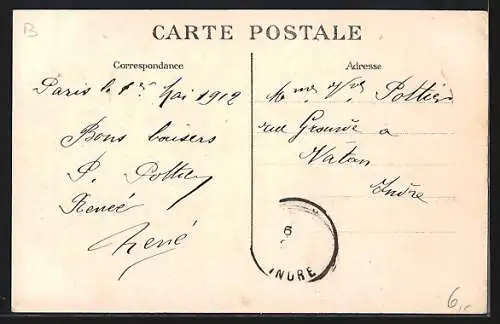 B
CARTE POSTALE
Correspondance
Paris le 1er Mai 1912
Bons baisers
P. Pottier
Renée
René
Adresse
Pottier
rue Grande a
Vatan
Indre
6
INDRE
6,-